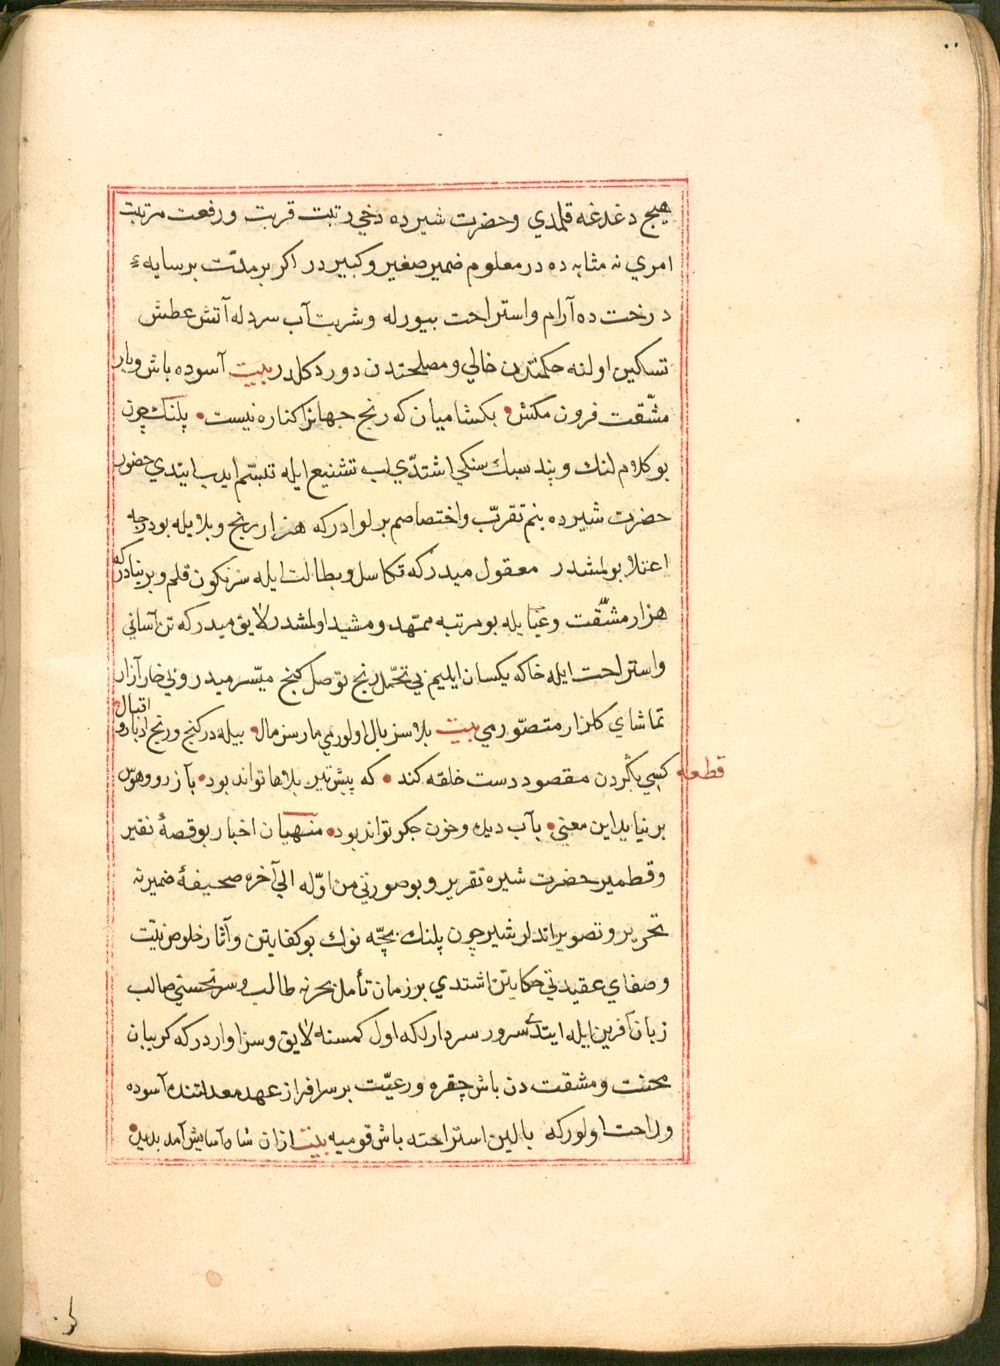 هيچ دغدغه قلمدي وحضرت شيرده دخي رتبت قربت ورفعت مرتبت
امري نه مثابه ده در معلوم ضمير صغير وكبير در اكر بر مدّت بر سايهء
درخت ده آرام واستراحت بيورله وشربت آب سرد له آتش عطش
تسكين اولنه حكمتدن خالي ومصلحتدن دور دكلدر بيت آسوده باش وبار
مشّقت فزون مكش • بكشا ميان كه رنج جهانرا كناره نيست • پلنك چون
بو كلام لنك وپند سبك سنكي اشتدي لب تشنيع ايله تبسّم ايدب ايتدي حضور
حضرت شيرده بنم تقرّب واختصاصم بر لوادر كه هزار رنج وبلا يله بو درجه
اعتلا بولمشدر معقول ميدر كه تكاسل وبطالت ايله سرنكون قلم وبر بنادر كه
هزار مشّقت وعنا يله بو مرتبه ممهّد ومشيد اولمشدر لايق ميدر كه تن آساني
واستراحت ايله خاكه يكسان ايليم بي تحمّل رنج توصل كنج ميّسر ميدر وبي خار آزار
تماشاي كلزار متصوّر مي بيت بلاسز بال اولورمي مارسز مال • بيله در كنج ورنج ادبار و اقبال
قطعه كسي بكردن مقصود دست حلقه كند • كه پيش تير بلاها تواند بود • بآرزو وهوس
بر نيايد اين معني • بآب ديده وخون جكر تواند بود • منهيان اخبار بو قصهٔ نقير
وقطمير حضرت شيره تقرير وبو صورتي من اوّله الي آخره صحيفهٔ ضميرنه
تحرير وتصوير اتدلر شير چون پلنك بچّه نوك بو كفايتن وآثار خلوص نيّت
وصفاي عقيدتي حكايتن اشتدي بر زمان تأمل بحرنه طالب وسر تحسيني صالب
زبان آفرين ايله ايتدي سرور سردارلكه اول كمسنه لايق وسزاوار در كه كريبان
محنت ومشقت دن باش چقره ورعيّت بر سرافراز عهد معدلتنده آسوده
وراحت اولور كه بالين استراحته باش قوميه بيت ازان شاه آسايش آمد پديد •